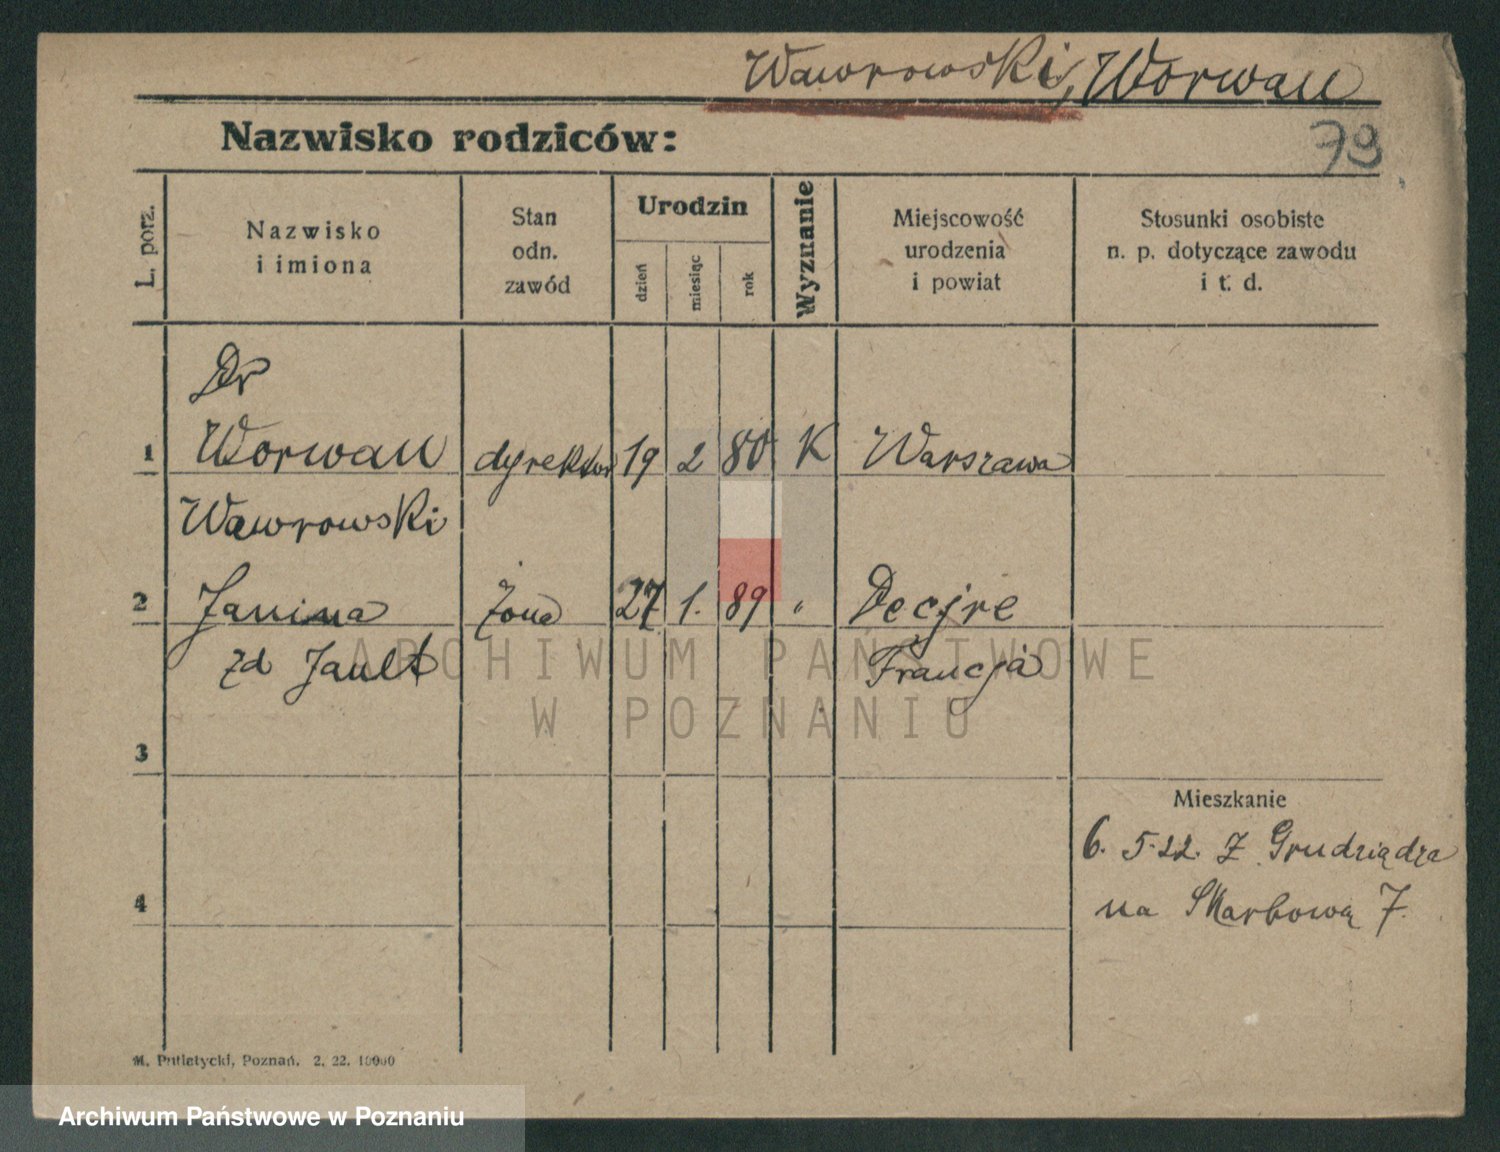 Wawrowski, Worwau
Nazwisko rodziców:
79
L. porz.
Nazwisko
i imiona
Stan
odn.
zawód
Urodzin
dzień
miesiąc
rok
Wyznanie
Miejscowość
urodzenia
i powiat
Stosunki osobiste
n. p. dotyczące zawodu
i t. d.
Dr
1 Worwau dyrektor 19 2 80 K Warszawa
Wawrowski
2 Janina żona 27 1. 89 " Decyre
zd Jault Francja
ARCHIWUM PAŃSTWOWE
W POZNANIU
3
Mieszkanie
6. 5.22. Z Grudziądza
4
na Skarbową 7.
M. Putiatycki, Poznań. 2. 22. 10000
Archiwum Państwowe w Poznaniu